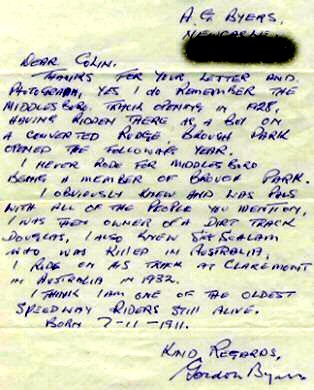 A. G. BYERS,
NEWCASTLE
DEAR COLIN.
THANKS FOR YOUR LETTER AND
PHOTOGRAPH, YES I DO REMEMBER THE
MIDDLESBORO. TRACK OPENING IN 1928,
HAVING RIDDEN THERE AS A BOY ON
A CONVERTED RUDGE, BROUGH PARK
OPENED THE FOLLOWING YEAR.
I NEVER RODE FOR MIDDLESBORO
BEING A MEMBER OF BROUGH PARK.
I OBVIOUSLY KNEW AND WAS PALS
WITH ALL OF THE PEOPLE YOU MENTION,
I WAS THEN OWNER OF A DIRT TRACK
DOUGLAS, I ALSO KNEW
WHO WAS KILLED IN AUSTRALIA,
I RODE ON HIS TRACK AT CLAREMONT
IN AUSTRALIA IN 1932.
I THINK I AM ONE OF THE OLDEST
SPEEDWAY RIDERS STILL ALIVE.
BORN 7-11-1911.
KIND REGARDS,
Gordon Byers